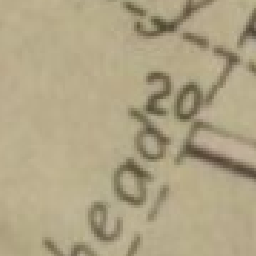 20
head